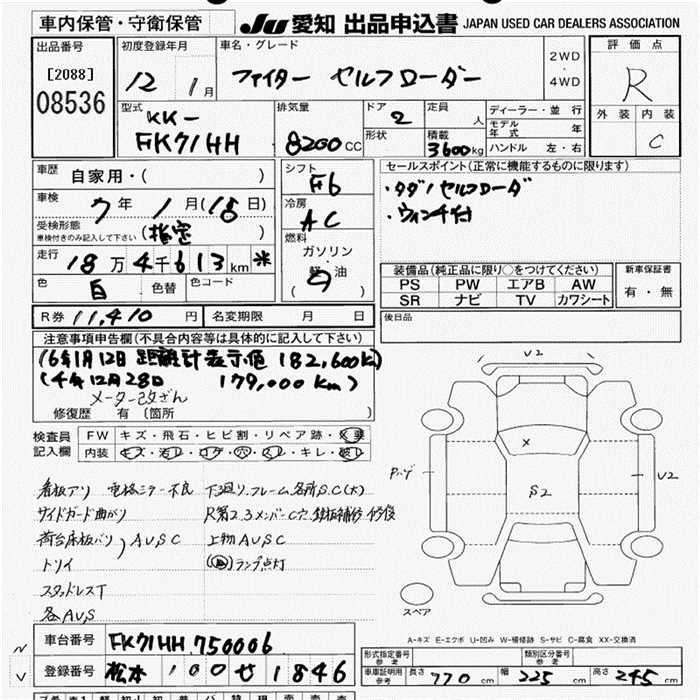 車内保管・守衛保管
JU 愛知 出品申込書 JAPAN USED CAR DEALERS ASSOCIATION
出品番号
[2088]
08536
初度登録年月
12 1月
車名・グレード
ファイター セルフローダー
2WD
4WD
評価点
R
外装 内装
C
型式
KK-
FK71HH
排気量
8200CC
ドア
2
形状
定員
人
積載
3600kg
ディーラー・並行
モデル年式 年
ハンドル 左・右
車歴
自家用・( )
車検
7年1月(18日)
受検形態
車検付きのみ記入して下さい
(指定)
走行
18万4千613km
色
白
色替
色コード
シフト
F6
冷房
AC
燃料
ガソリン
軽油
( )
セールスポイント(正常に機能するものに限ります)
・タダノセルフローダ
・ウィンチ付
装備品(純正品に限り○をつけてください)
PS PW エアB AW
SR ナビ TV カワシート
新車保証書
有・無
後日品
R券 11,410円
名変期限 月 日
注意事項申告欄(不具合内容等は具体的に記入して下さい)
(6年1月12日 距離計表示値 182,600K)
(4年12月28日 179,000Km)
メーター改ざん
修復歴 有 〔箇所 〕
検査員記入欄
FW キズ・飛石・ヒビ割・リペア跡・X要
内装 キズ・汚レ・コゲ・穴・スレ・キレ・破レ
看板アリ 電格ミラー不良
サイドガード曲がり
荷台床板バリ)AUSC
トリイ
スタッドレスT
各AUS
下廻り.フレーム各所SC(大)
R第2.3メンバーC穴.鉄板補修.修復
上物AUSC
ランプ点灯
U2
X
S2
U2
スペア
A-キズ E-エクボ U-凹み W-補修跡 S-サビ C-腐食 XX-交換済
車台番号
FK71HH 750006
登録番号
松本 100せ1846
型式指定番号
参考
類別区分番号
参考
車庫証明用
参考
長さ 770cm
幅 225cm
高さ 245cm